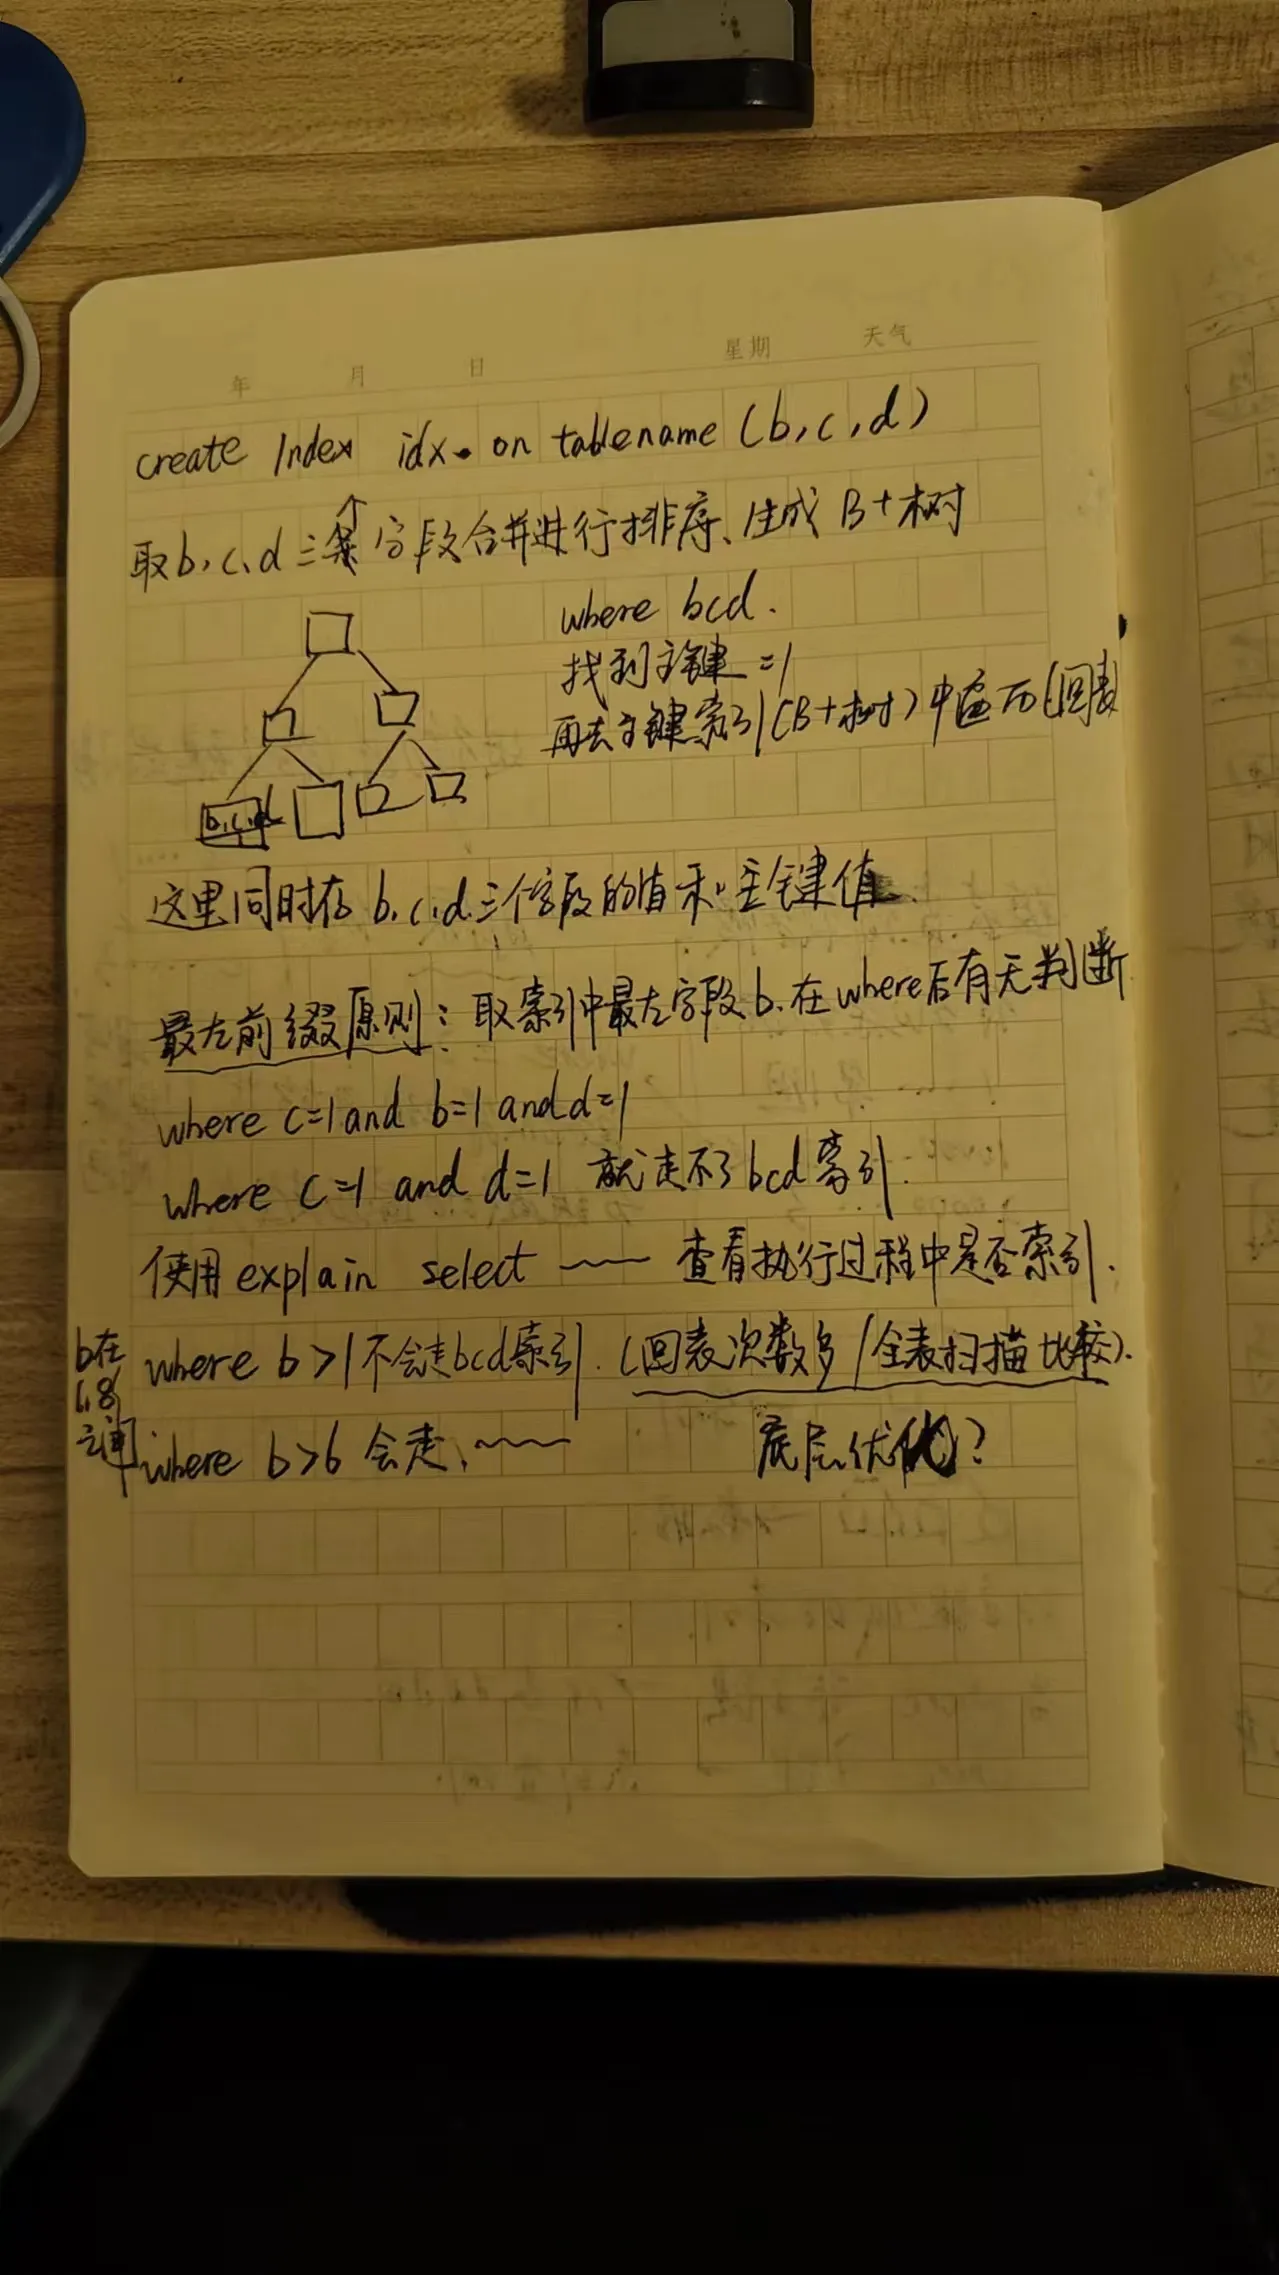 年 月 日 星期 天气
create Index idx. on tablename (b,c,d)
取b,c,d三个字段合并进行排序、生成B+树
where bcd.
找到主键=1
再去主键索引(B+树)中遍历(回表
b,c,d
这里同时存b,c,d三个字段的值和主键值.
最左前缀原则:取索引中最左字段b.在where后有无判断.
where c=1 and b=1 and d=1
where c=1 and d=1 就走不了bcd索引.
使用explain select ~~~ 查看执行过程中是否索引.
b在
1,8
之间
where b>1不会走bcd索引.(回表次数多/全表扫描比较).
where b>6 会走、~~~ 底层优化?